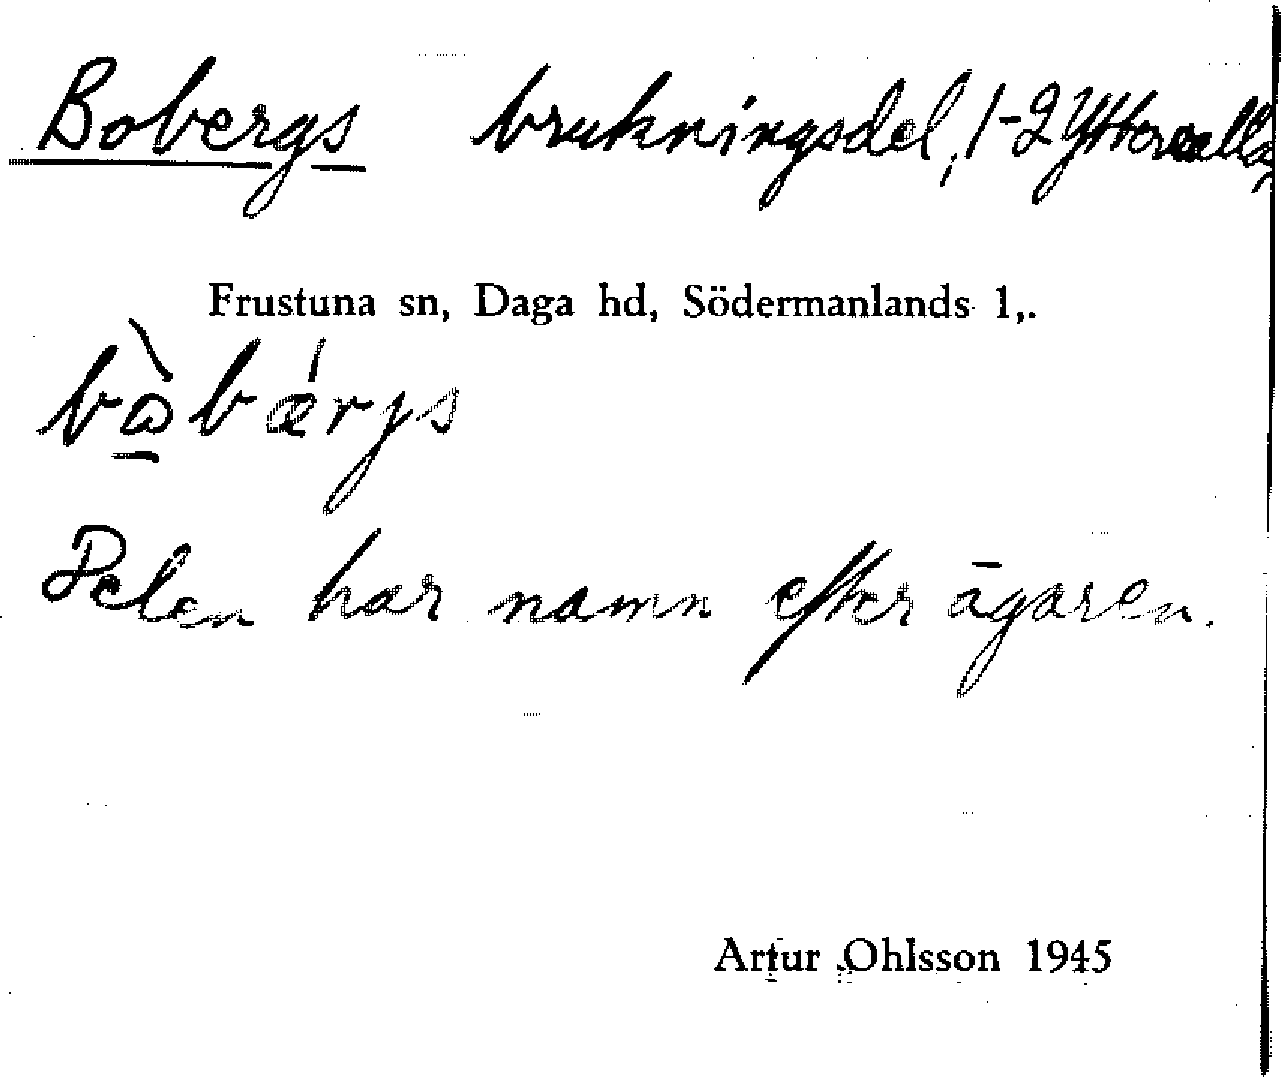 Bobergs brukningsdel, 1-2 Yttervalla,
Frustuna sn, Daga hd, Södermanlands l,.
bòbǽrjs
Delen har namn efter ägaren.
Artur Ohlsson 1945